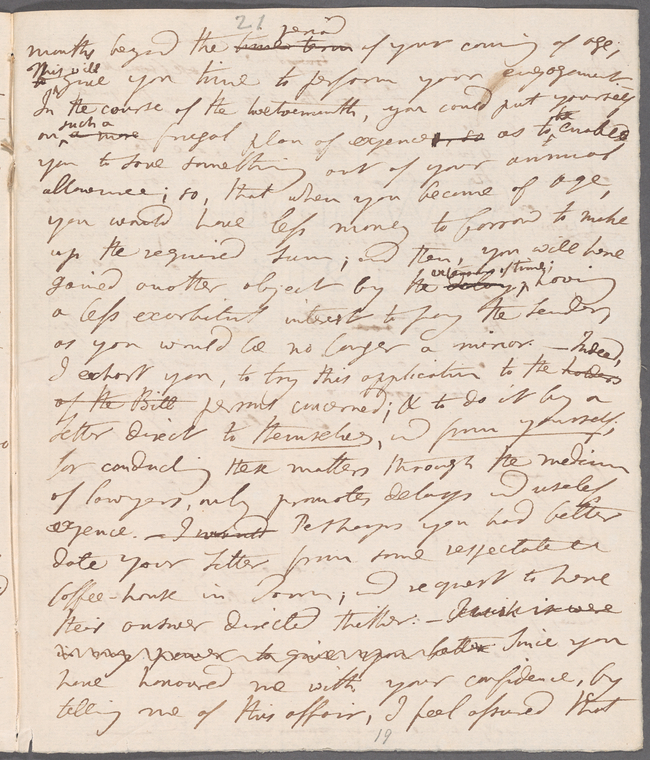 21
period
months beyond the times term of your coming of age;
This will
give you time to perform your engagement
In the course of the twelvemonth, you could put yourself
such a be
on a more frugal plan of expence, so as to enabled
you to save something out of your annual
allowance; so, that when you become of age,
you would have less money to borrow to make
up the required sum; and then, you will have
extension of time;
gained another object by the delay, having
a less exorbitant interest to pay the lenders
as you would be no longer a minor. — Indeed,
I exhort you, to try this application to the holders
of the Bill persons concerned; & to do it by a
letter direct to themselves, and from yourself;
for conducting these matters through the medium
of lawyers, only promotes delays and useless
expence. — I would Perhaps you had better
date your letter from some respectable
Coffee-house in Town; and request to have
their answer directed thither. — I wish it were
in my power to give you better Since you
have honoured me with your confidence, by
telling me of this affair, I feel assured that
19